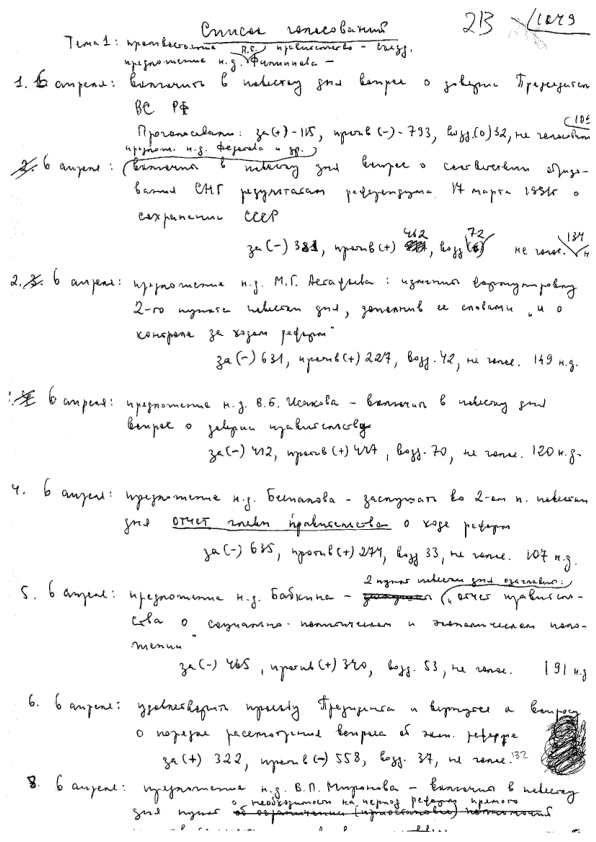 Список голосований
2В 1049
Тема 1: противостояние н.д. правительство – съезд.
предложение н.д. Филиппова –
1. 6 апреля: включить в повестку дня вопрос о доверии Председателю
ВС РФ
Проголосовали: за(+)-115, против(-)-793, возд.(0)32, не голосовали 109
предлож. н.д. Федосеева и др.
2. 6 апреля: включить в повестку дня вопрос о соответствии образо-
вания СНГ результатам референдума 17 марта 1991г о
сохранении СССР
за(-) 381, против(+) 412, возд 72 не голос. 184
2. 3. 6 апреля: предложение н.д. М.Г. Астафьева: изменить формулировку
2-го пункта повестки дня, дополнив ее словами "и о
контроле за ходом реформ"
за(-) 631, против(+) 227, возд. 42, не голос. 149 н.д.
6 апреля: предложение н.д. В.Б. Исакова – включить в повестку дня
вопрос о доверии правительству
за(-) 412, против(+) 447, возд. 70, не голос. 120 н.д.
4. 6 апреля: предложение н.д. – заслушать во 2-ом п. повестки
дня отчет главы правительства о ходе реформ
за(-) 635, против(+) 274, возд 33, не голос. 107 н.д.
2 пункт повестки дня озаглавить:
5. 6 апреля: предложение н.д. Бабкина – "отчет правитель-
ства о социально-политическом и экономическом поло-
жении"
за(-) 465, против(+) 340, возд. 53, не голос. 191 н.д
6. 6 апреля: удовлетворить просьбу Президента и вернуться к вопросу
о порядке рассмотрения вопроса об экон. реформе
за(+) 322, против(-) 558, возд. 37, не голос. 132
8. 6 апреля: предложение н.д. В.П. Миронова – включить в повестку
о необходимости на период реформ прямого
дня пункт об ограничении (приостановке) полномочий